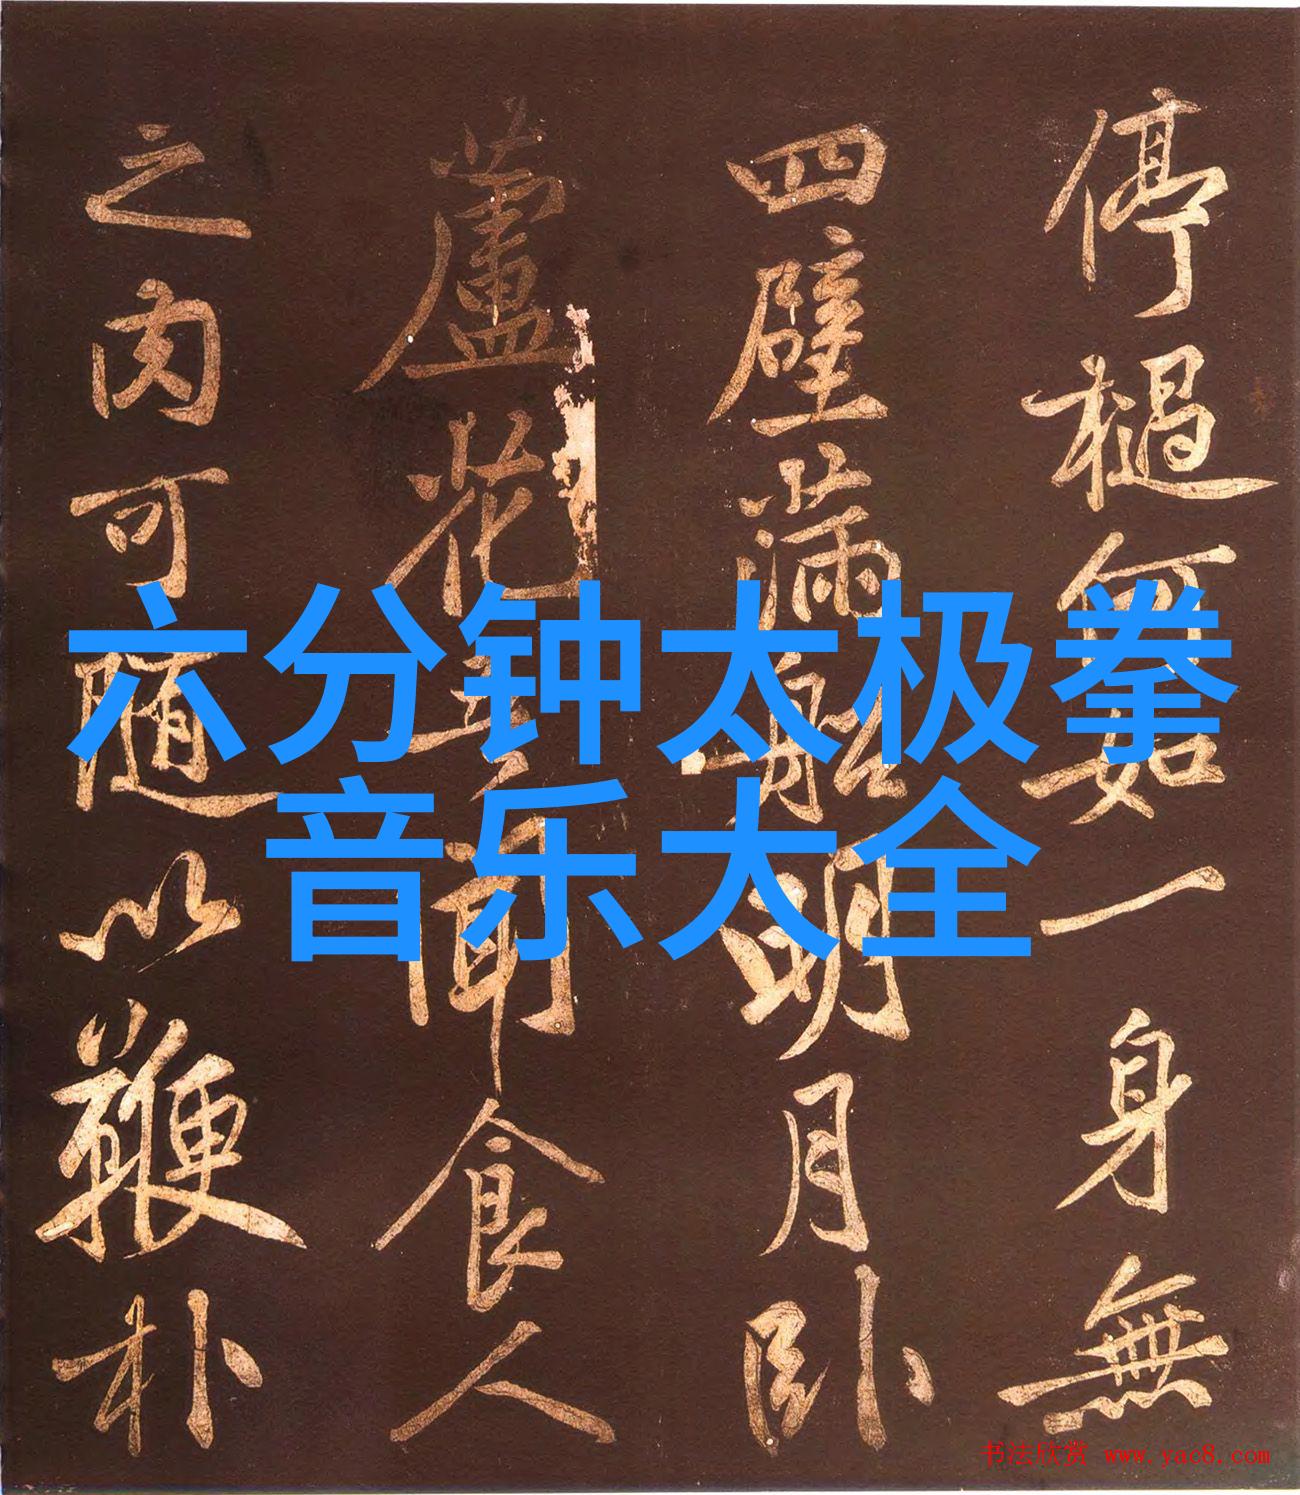 停檛何如一身無
四壁滿船明月卧
蘆花吾聞食人
之肉可隨以鞭朴
六分钟太极拳
音乐大全
书法欣赏 www.yac8.com